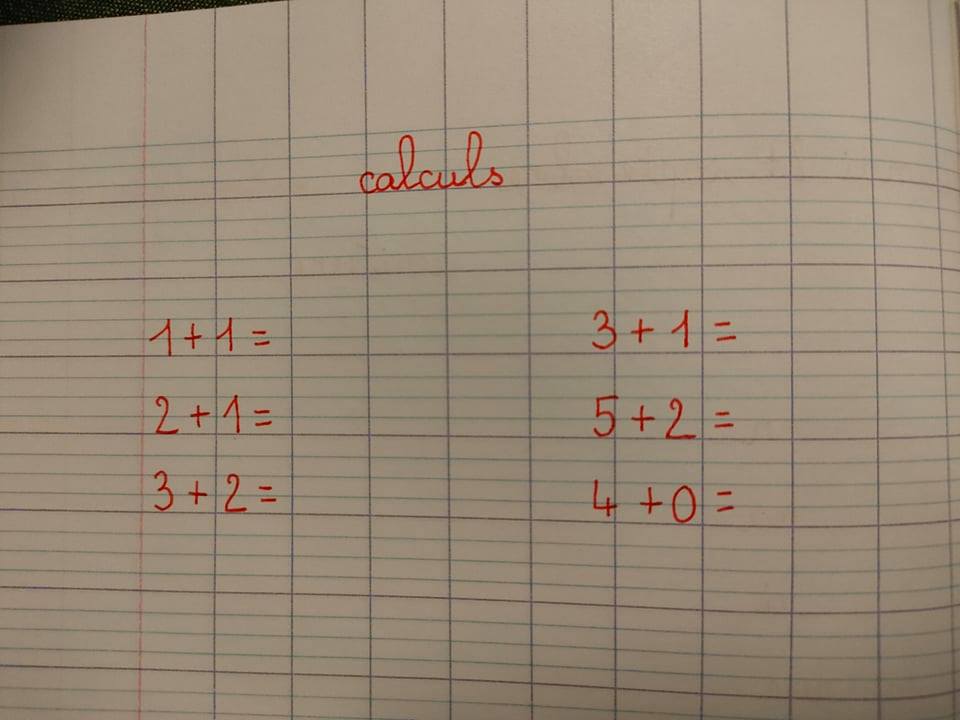 calculs
1 + 1 =
2 + 1 =
3 + 2 =
3 + 1 =
5 + 2 =
4 + 0 =